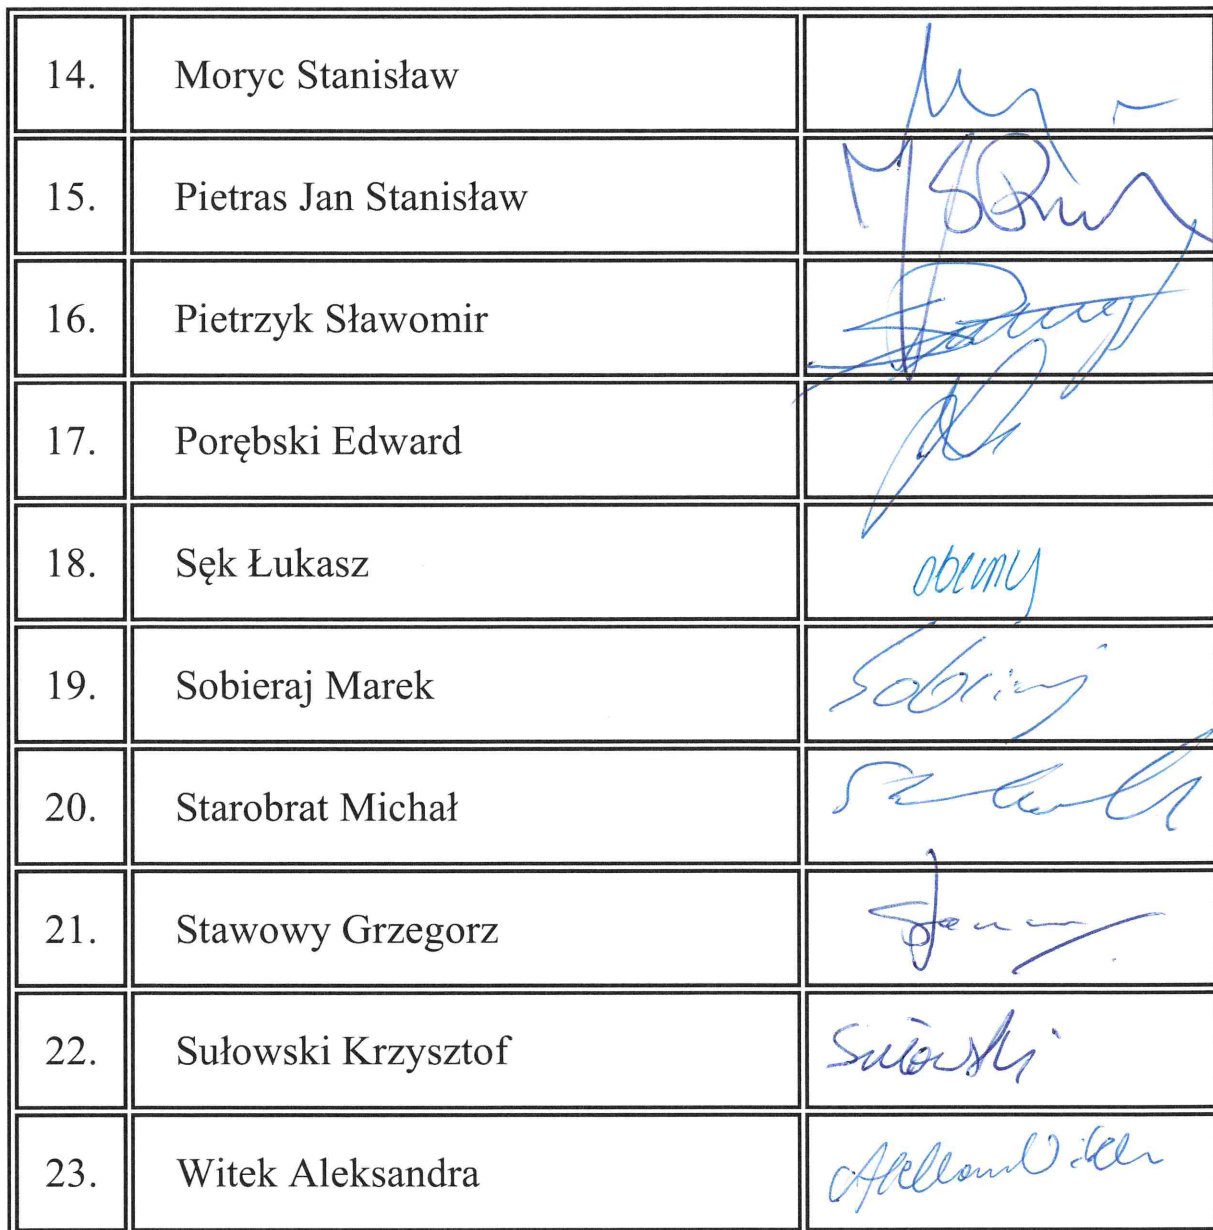 14. Moryc Stanisław
15. Pietras Jan Stanisław
16. Pietrzyk Sławomir
17. Porębski Edward
18. Sęk Łukasz obecny
19. Sobieraj Marek
20. Starobrat Michał
21. Stawowy Grzegorz
22. Sułowski Krzysztof Sułowski
23. Witek Aleksandra